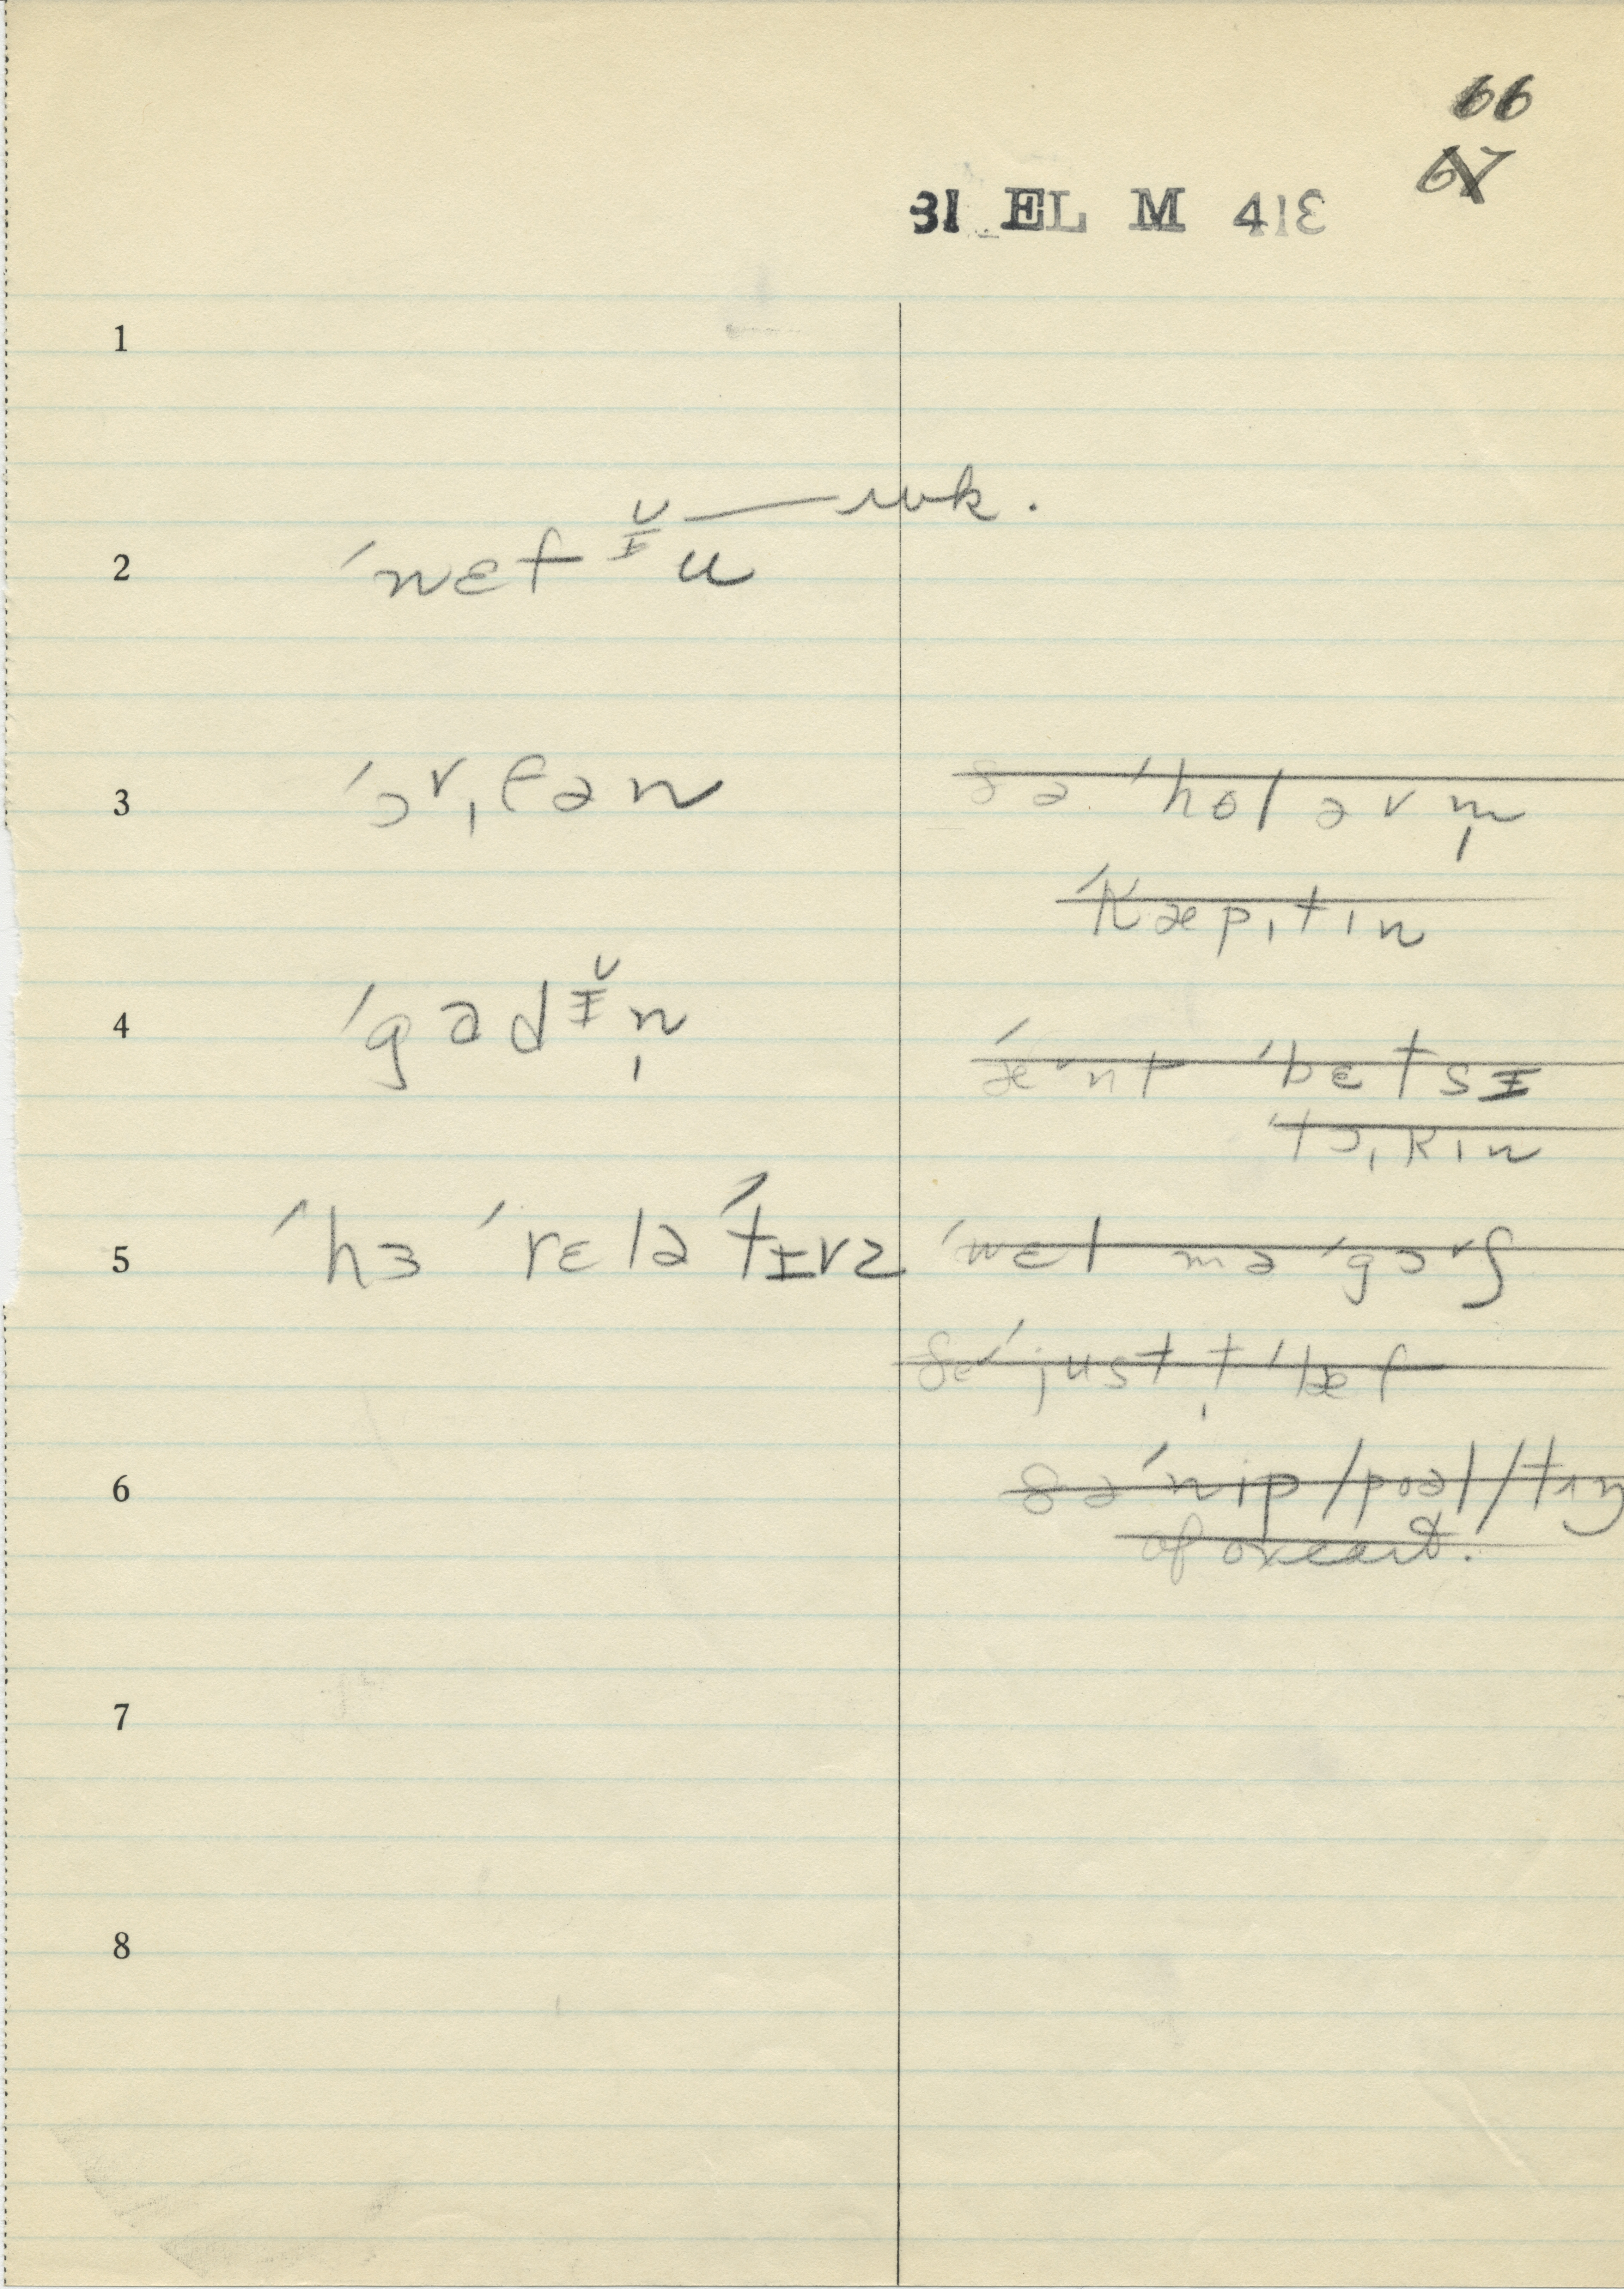 66
67
31 EL M 413
1
wk.
2 ˈnɛfɪ̆u
3 ˈɔrˌfən
ðə ˈholərm̩
ˈkæpˌtɪn
4 ˈgadɪ̆n̩
ˈbɛtsɪ
ˈtɔˌkɪn
5 ˈhɜ ˈrɛləˈtɪvz
ˈwɛl məˈgɔʳʃ
ˈjust t̩ ˈlæf
6 ðə ˈnip/poəl/tɪŋ
of oxcart.
7
8